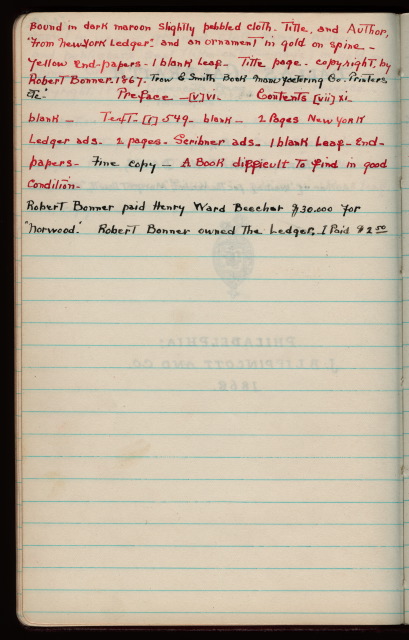 Bound in dark maroon slightly pebbled cloth. Title, and Author,
"From New York Ledger" and an ornament in gold on spine. -
Yellow End-papers - 1 blank leaf - Title page. copyright, by
Robert Bonner. 1867. Trow & Smith Book Manufactering Co. Printers,
Etc. Preface - [v] vi. Contents [vii] xi.
blank - Text - [1] - 549 - blank - 2 Pages New York
Ledger ads. 2 pages - Scribner ads. 1 blank Leaf - End-
papers - Fine copy - A Book difficult To find in good
Condition -
Robert Bonner paid Henry Ward Beecher $30.000 for
"Norwood." Robert Bonner owned The Ledger. I Paid $2.50
PHILADELPHIA:
J. B. LIPPINCOTT AND CO.
1868.